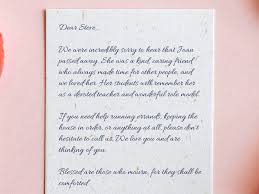 Dear Steve,
We were incredibly sorry to hear that Joan
passed away. She was a kind, caring friend
who always made time for other people, and
we loved her. Her students will remember her
as a devoted teacher and wonderful role model.
If you need help running errands, keeping the
house in order, or anything at all, please don't
hesitate to call us. We love you and are
thinking of you.
Blessed are those who mourn, for they shall
be comforted